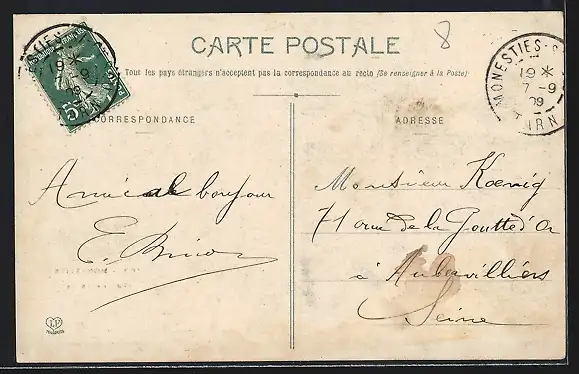 CARTE POSTALE
8
Tous les pays étrangers n'acceptent pas la correspondance au recto (Se renseigner à la Poste)
CORRESPONDANCE
ADRESSE
MONESTIES-S
19 *
7 -9
09
TARN
5
Amical bonjour
E.
Monsieur Koenig
71 rue de la Goutte d'Or
à Aubervilliers
Seine